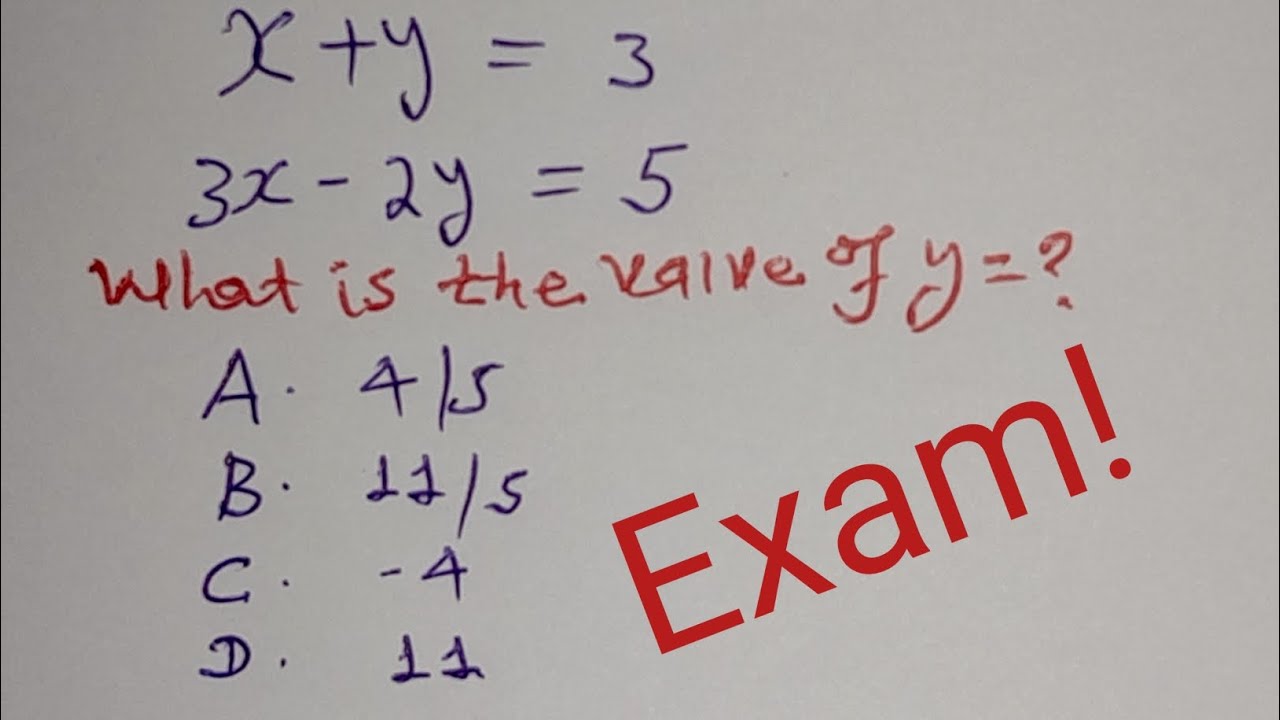 x+y = 3
3x - 2y = 5
What is the value of y = ?
A. 4/5
B. 11/5
C. -4
D. 11
Exam!